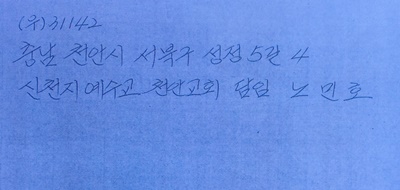 (우)31142
충남 천안시 서북구 성정5길 4
신천지예수교 천안교회 담임 노민호